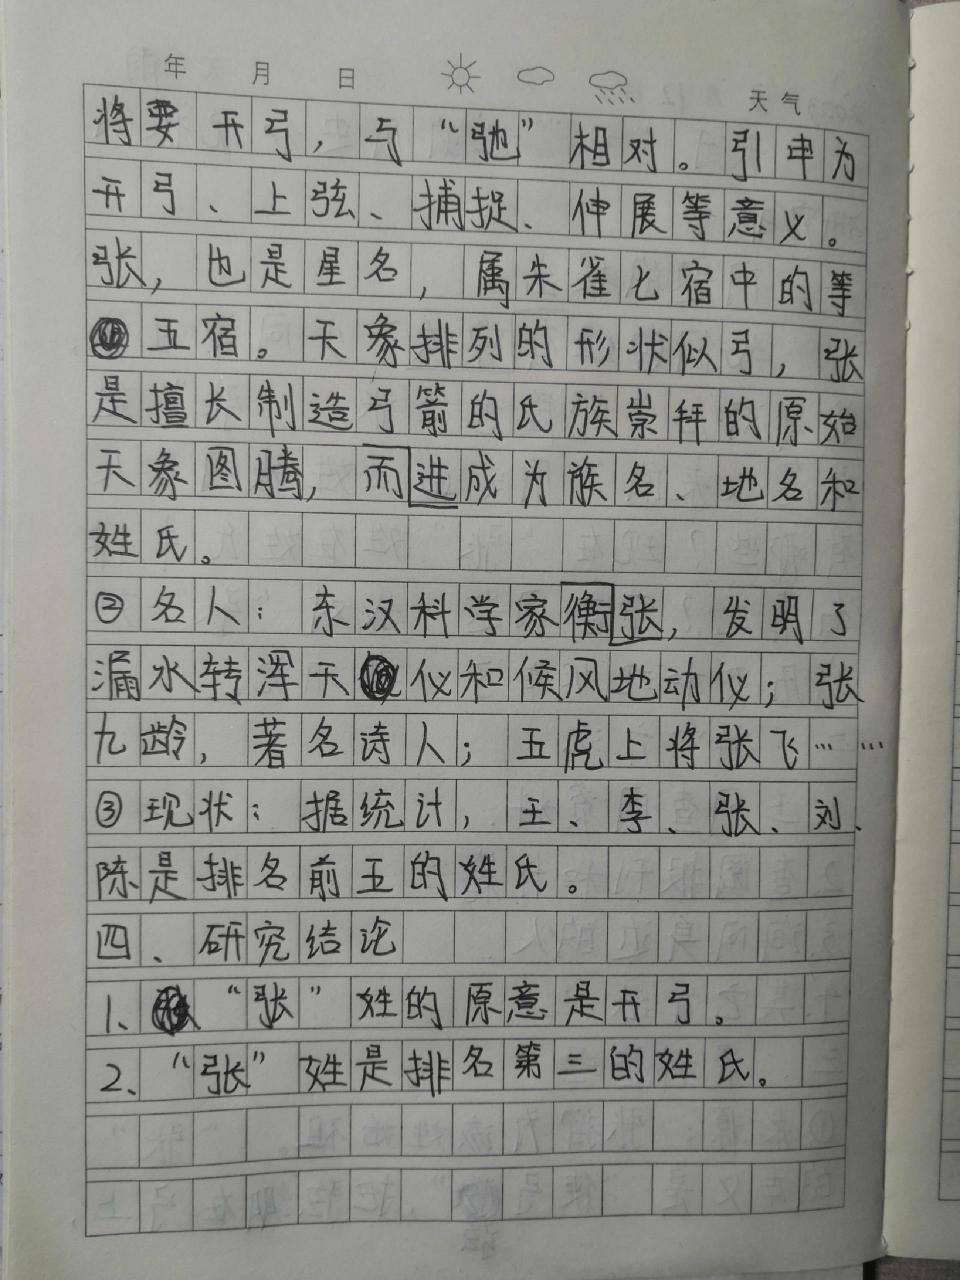 年 月 日 天气
将要开弓，与“弛”相对。引申为
开弓、上弦、捕捉、伸展等意义。
张，也是星名，属朱雀七宿中的等
五宿。天象排列的形状似弓，张
是擅长制造弓箭的氏族崇拜的原始
天象图腾，而进成为族名、地名和
姓氏。
②名人：东汉科学家衡张，发明了
漏水转浑天仪和候风地动仪；张
九龄，著名诗人；五虎上将张飞……
③现状：据统计，王、李、张、刘、
陈是排名前五的姓氏。
四、研究结论
1、“张”姓的原意是开弓。
2、“张”姓是排名第三的姓氏。